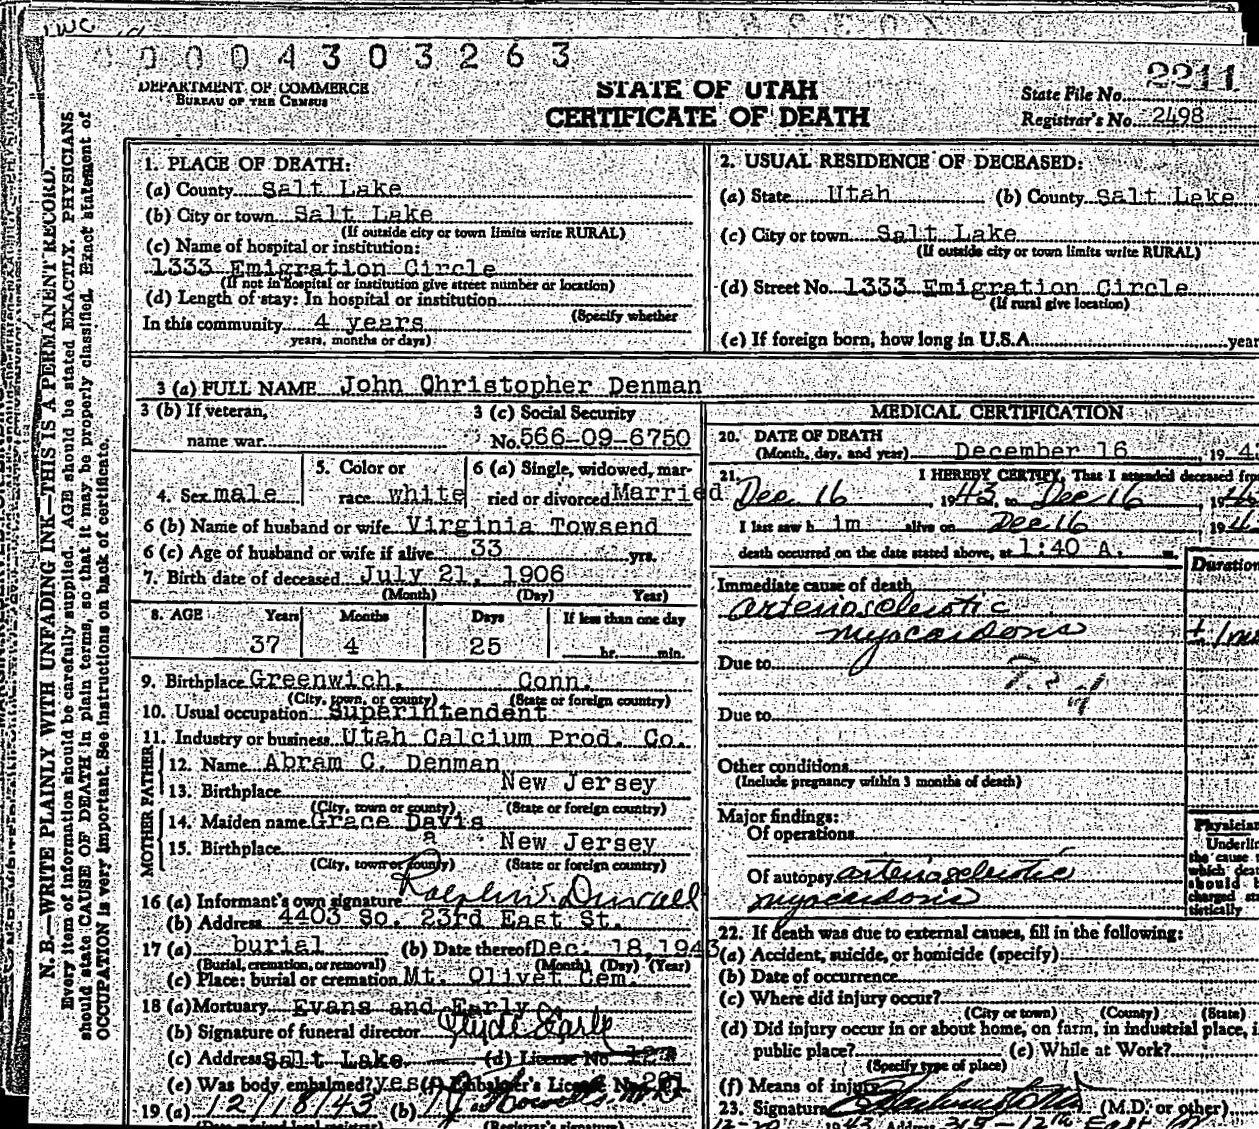 IWC
0 0 0 4 3 0 3 2 6 3
2211
DEPARTMENT OF COMMERCE
BUREAU OF THE CENSUS
STATE OF UTAH
CERTIFICATE OF DEATH
State File No.
Registrar's No. 2498
N. B.—WRITE PLAINLY WITH UNFADING INK—THIS IS A PERMANENT RECORD.
Every item of information should be carefully supplied. AGE should be stated EXACTLY. PHYSICIANS
should state CAUSE OF DEATH in plain terms, so that it may be properly classified. Exact statement of
OCCUPATION is very important. See instructions on back of certificate.
1. PLACE OF DEATH:
(a) County Salt Lake
(b) City or town Salt Lake
(If outside city or town limits write RURAL)
(c) Name of hospital or institution:
1333 Emigration Circle
(If not in hospital or institution give street number or location)
(d) Length of stay: In hospital or institution
(Specify whether
In this community 4 years
years, months or days)
2. USUAL RESIDENCE OF DECEASED:
(a) State Utah (b) County Salt Lake
(c) City or town Salt Lake
(If outside city or town limits write RURAL)
(d) Street No. 1333 Emigration Circle
(If rural give location)
(e) If foreign born, how long in U.S.A. year
3 (a) FULL NAME John Christopher Denman
3 (b) If veteran,
name war
3 (c) Social Security
No. 566-09-6750
4. Sex male
5. Color or
race white
6 (a) Single, widowed, mar-
ried or divorced Married
6 (b) Name of husband or wife Virginia Towsend
6 (c) Age of husband or wife if alive 33 yrs.
7. Birth date of deceased July 21, 1906
(Month) (Day) Year)
8. AGE Years Months Days If less than one day
37 4 25 hr. min.
9. Birthplace Greenwich, Conn.
(City, town, or county) (State or foreign country)
10. Usual occupation Superintendent
11. Industry or business Utah Calcium Prod. Co.
FATHER
12. Name Abram C. Denman
13. Birthplace New Jersey
(City, town or county) (State or foreign country)
MOTHER
14. Maiden name Grace Davis
15. Birthplace New Jersey
(City, town or county) (State or foreign country)
16 (a) Informant's own signature
(b) Address 4403 So. 23rd East St.
17 (a) burial (b) Date thereof Dec. 18, 1943
(Burial, cremation, or removal) (Month) (Day) (Year)
(c) Place: burial or cremation Mt. Olivet Cem.
18 (a) Mortuary Evans and Early
(b) Signature of funeral director Clyde Early
(c) Address Salt Lake. (d) License No.
(e) Was body embalmed? yes (f) Embalmer's License No.
19 (a) 12/18/43 (b)
(Date received local registrar) (Registrar's signature)
MEDICAL CERTIFICATION
20. DATE OF DEATH
(Month, day, and year) December 16, 194
21. I HEREBY CERTIFY, That I attended deceased from
Dec. 16, 1943, to Dec 16, 194
I last saw h im alive on Dec 16, 194
death occurred on the date stated above, at 1:40 A. m.
Duration
Immediate cause of death
arteriosclerotic
myocardosis
Due to
Due to
Other conditions
(Include pregnancy within 3 months of death)
Major findings:
Of operations
Of autopsy arteriosclerotic
myocardosis
Physician
Underline
the cause
which death
should
charged sta-
tistically
22. If death was due to external causes, fill in the following:
(a) Accident, suicide, or homicide (specify)
(b) Date of occurrence
(c) Where did injury occur?
(City or town) (County) (State)
(d) Did injury occur in or about home, on farm, in industrial place,
public place? (e) While at Work?
(Specify type of place)
(f) Means of injury
23. Signature (M.D. or other)